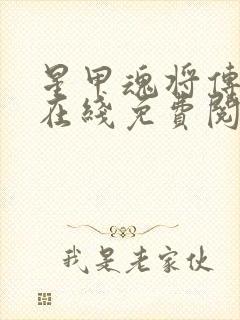 星甲魂将傳
在綫免費閱
我是老家伙